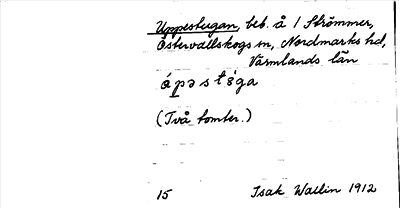 Uppestugan, beb. å 1 Strömmer,
Östervallskogs sn, Nordmarks hd,
Värmlands län
(Två tomter.)
15 Isak Wallin 1912